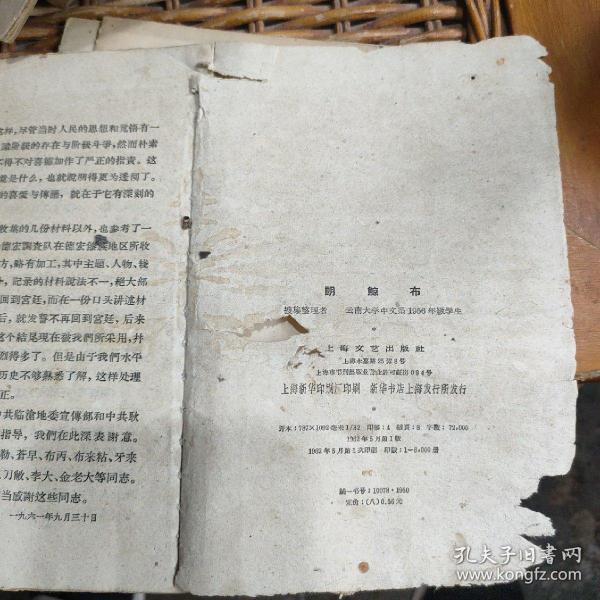 这样,尽管当时人民的思想和觉悟有一
阶级的存在与阶级斗争,然而朴素
不得不对喜德加作了严正的指責。这
是什么,也就說明得更为透彻了。
的喜爱与傳播,就在于它有深刻的
收集的几份材料以外,也参考了一
德宏調查队在德宏
地区所收
方,略有加工,其中主題、人物、
,記录的材料說法不一,絕大部
回到宮廷,而在一份口头讲述材
后,就发誓不再回到宮廷,后来
这个結尾現在被我們所采用,幷
烈得多了。但是由于我們水平
历史不够熟悉了解,这样处理
正。
中共临滄地委宣傳部和中共耿
指导,我們在此深表謝意。
勒、蒼早、布丙、布米帖、牙来
刀敏、李大、金老大等同志。
当感謝这些同志。
一九六一年九月三十日
朗鯨布
整理者 云南大学中文系1956年級学生
上海文艺出版社
上海永嘉路25弄8号
上海市书刊出版业营业許可証出094号
上海新华印刷厂印刷 新华书店上海发行所发行
开本:787×1092毫米1/32 印張:4 插頁:8 字数:72,000
1962年5月第1版
1962年5月第1次印刷 印数:1-8,000册
統一书号:10078·1960
定价:(八)0.56元
孔夫子旧书网
www.kongfz.com